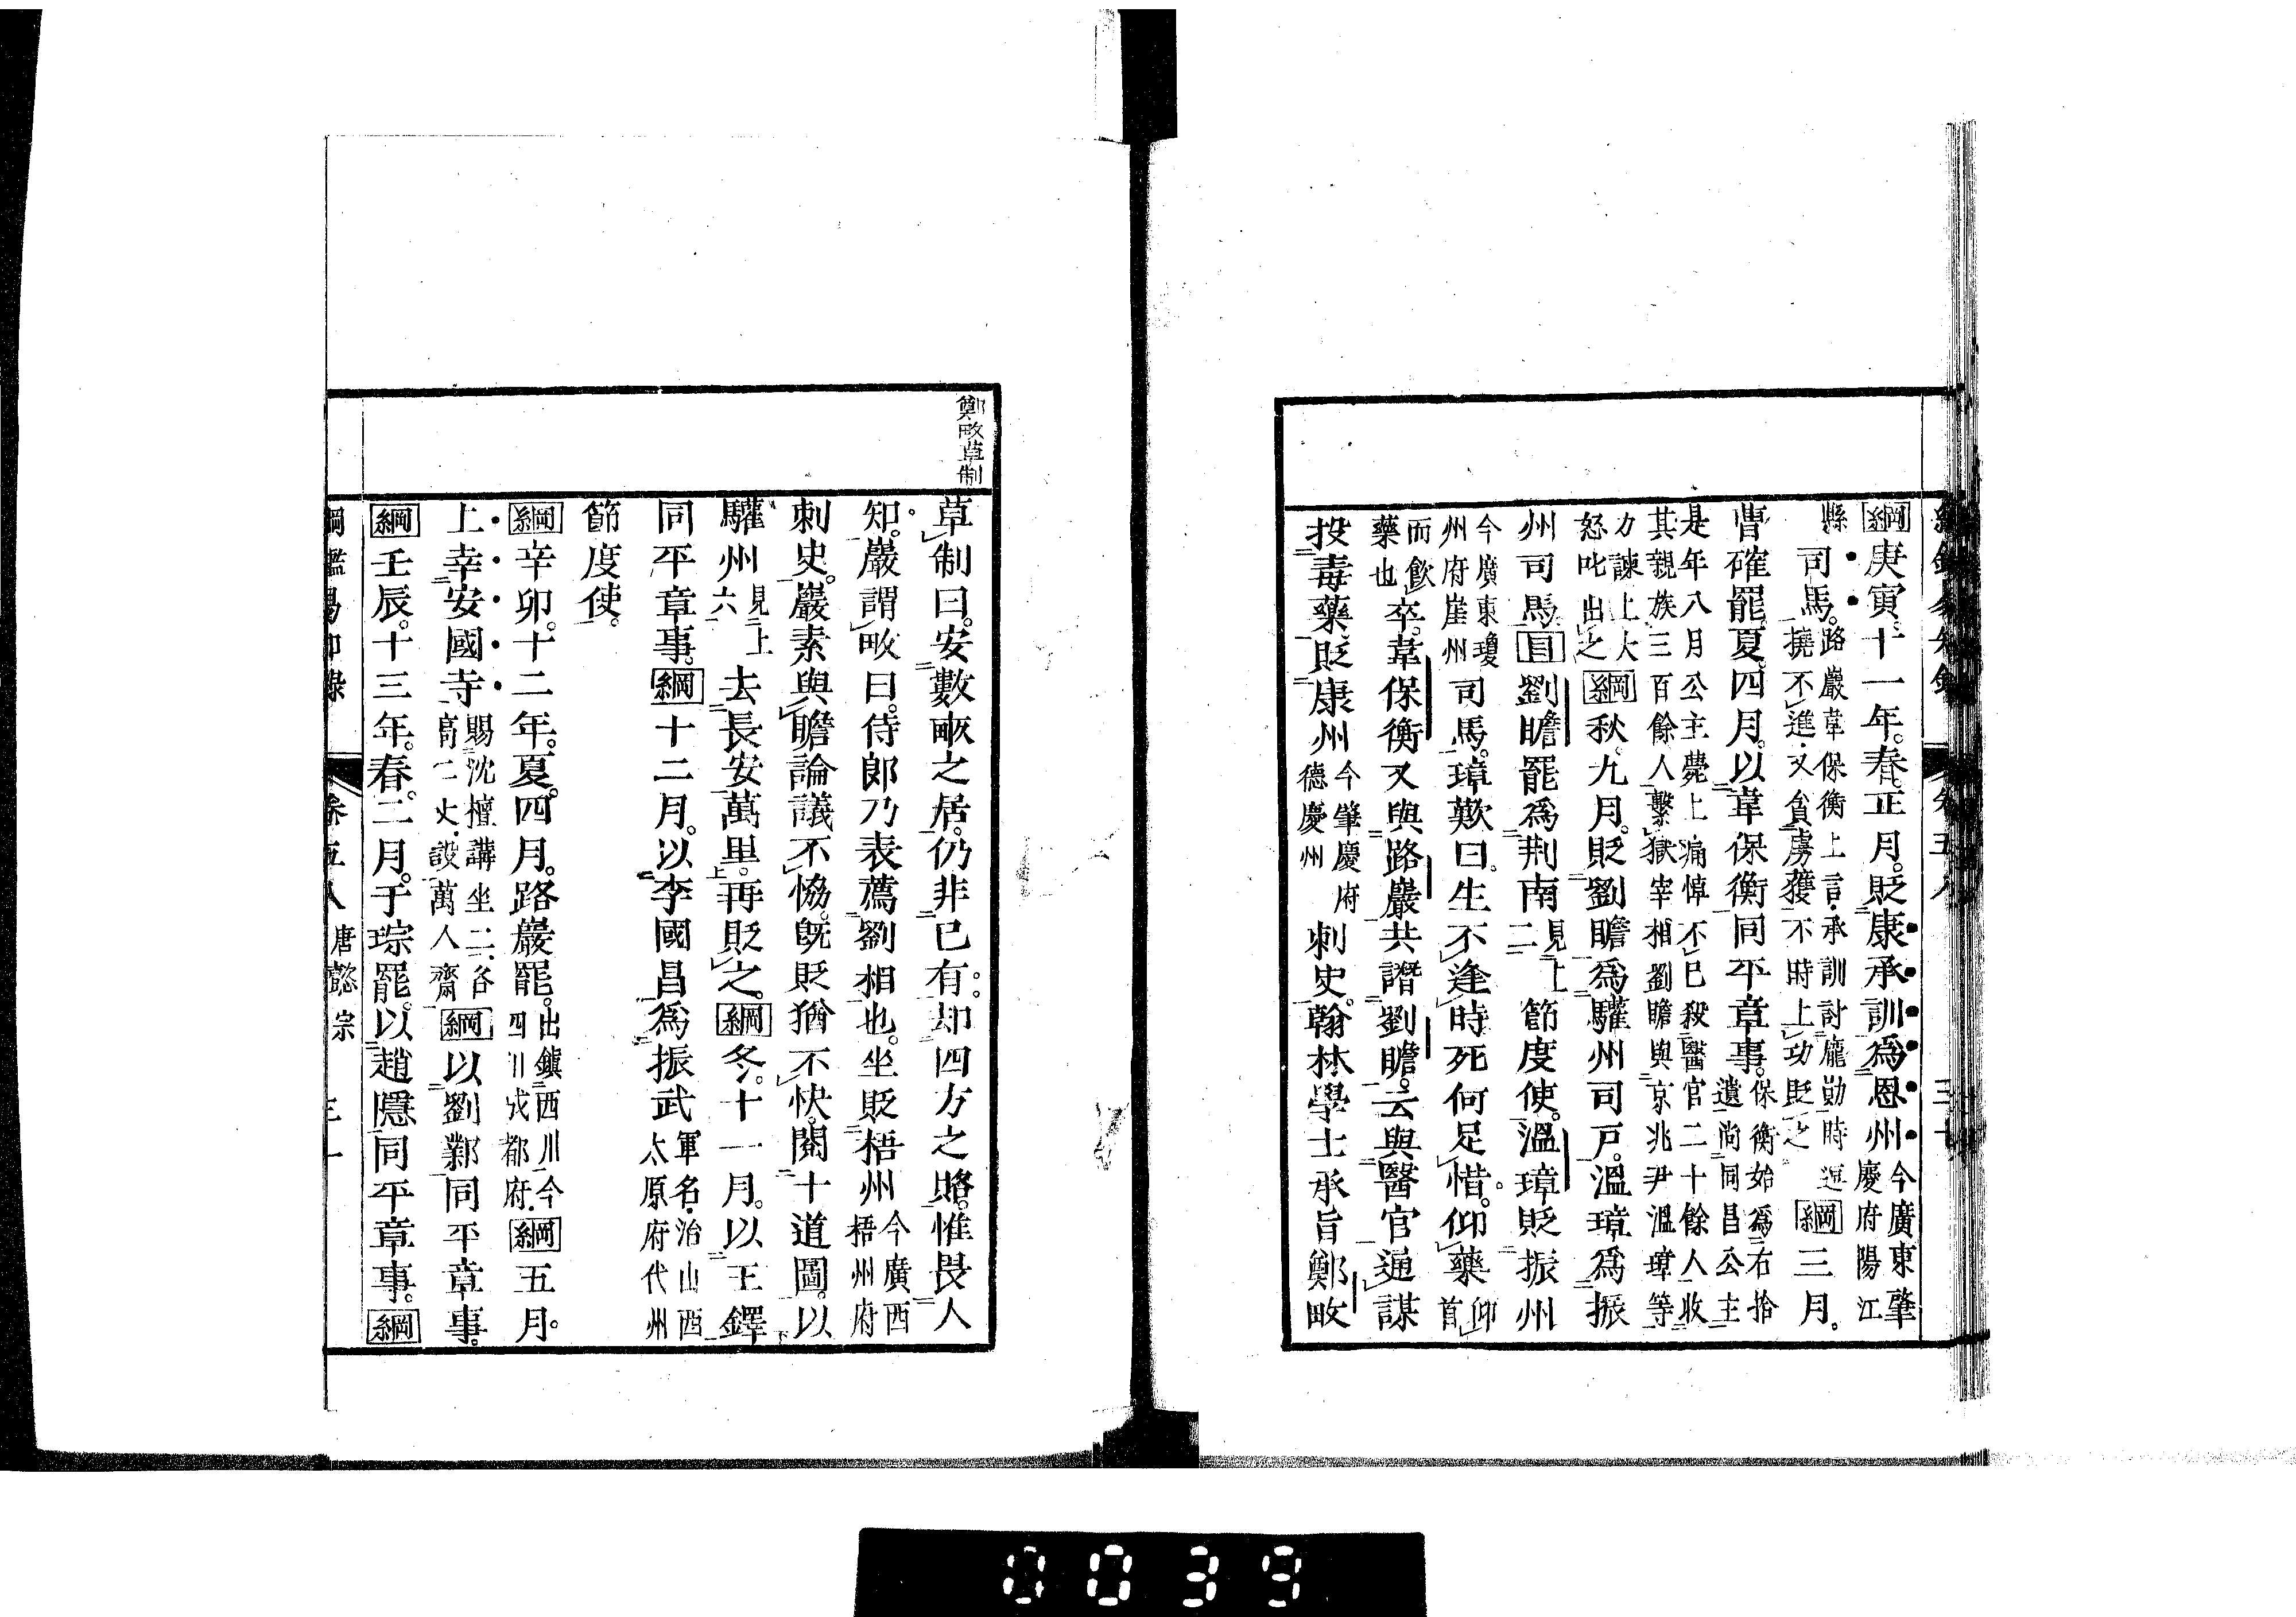 綱庚寅十一年春正月貶康承訓爲恩州今廣東肇慶府陽江
縣司馬路巖韋保衡上言承訓討龐勛時逗撓不進又貪虜獲不時上功貶之綱三月
曹確罷夏四月以韋保衡同平章事保衡始爲右拾遺尚同昌公主
是年八月公主薨上痛悼不已殺醫官二十餘人收其親族三百餘人繫獄宰相劉瞻與京兆尹溫璋等
力諫上大怒叱出之綱秋九月貶劉瞻爲驩州司戶溫璋爲振
州司馬目劉瞻罷爲荆南見上二節度使溫璋貶振州
今廣東瓊州府崖州司馬璋歎曰生不逢時死何足惜仰藥仰首
而飲藥也卒韋保衡又與路巖共譖劉瞻云與醫官通謀
投毒藥貶康州今肇慶府德慶州刺史翰林學士承旨鄭畋
鄭畋草制
草制曰安數畝之居仍非已有却四方之賂惟畏人
知巖謂畋曰侍郎乃表薦劉相也坐貶梧州今廣西梧州府
刺史巖素與瞻論議不恊旣貶猶不快閱十道圖以
驩州見上六去長安萬里再貶之綱冬十一月以王鐸
同平章事綱十二月以李國昌爲振武軍名治山西太原府代州
節度使
綱辛卯十二年夏四月路巖罷出鎮西川今四川成都府綱五月
上幸安國寺賜沈檀講坐二各高二丈設萬人齋綱以劉鄴同平章事
綱壬辰十三年春二月于琮罷以趙隱同平章事綱
綱鑑易知錄 卷五八 唐懿宗
0039